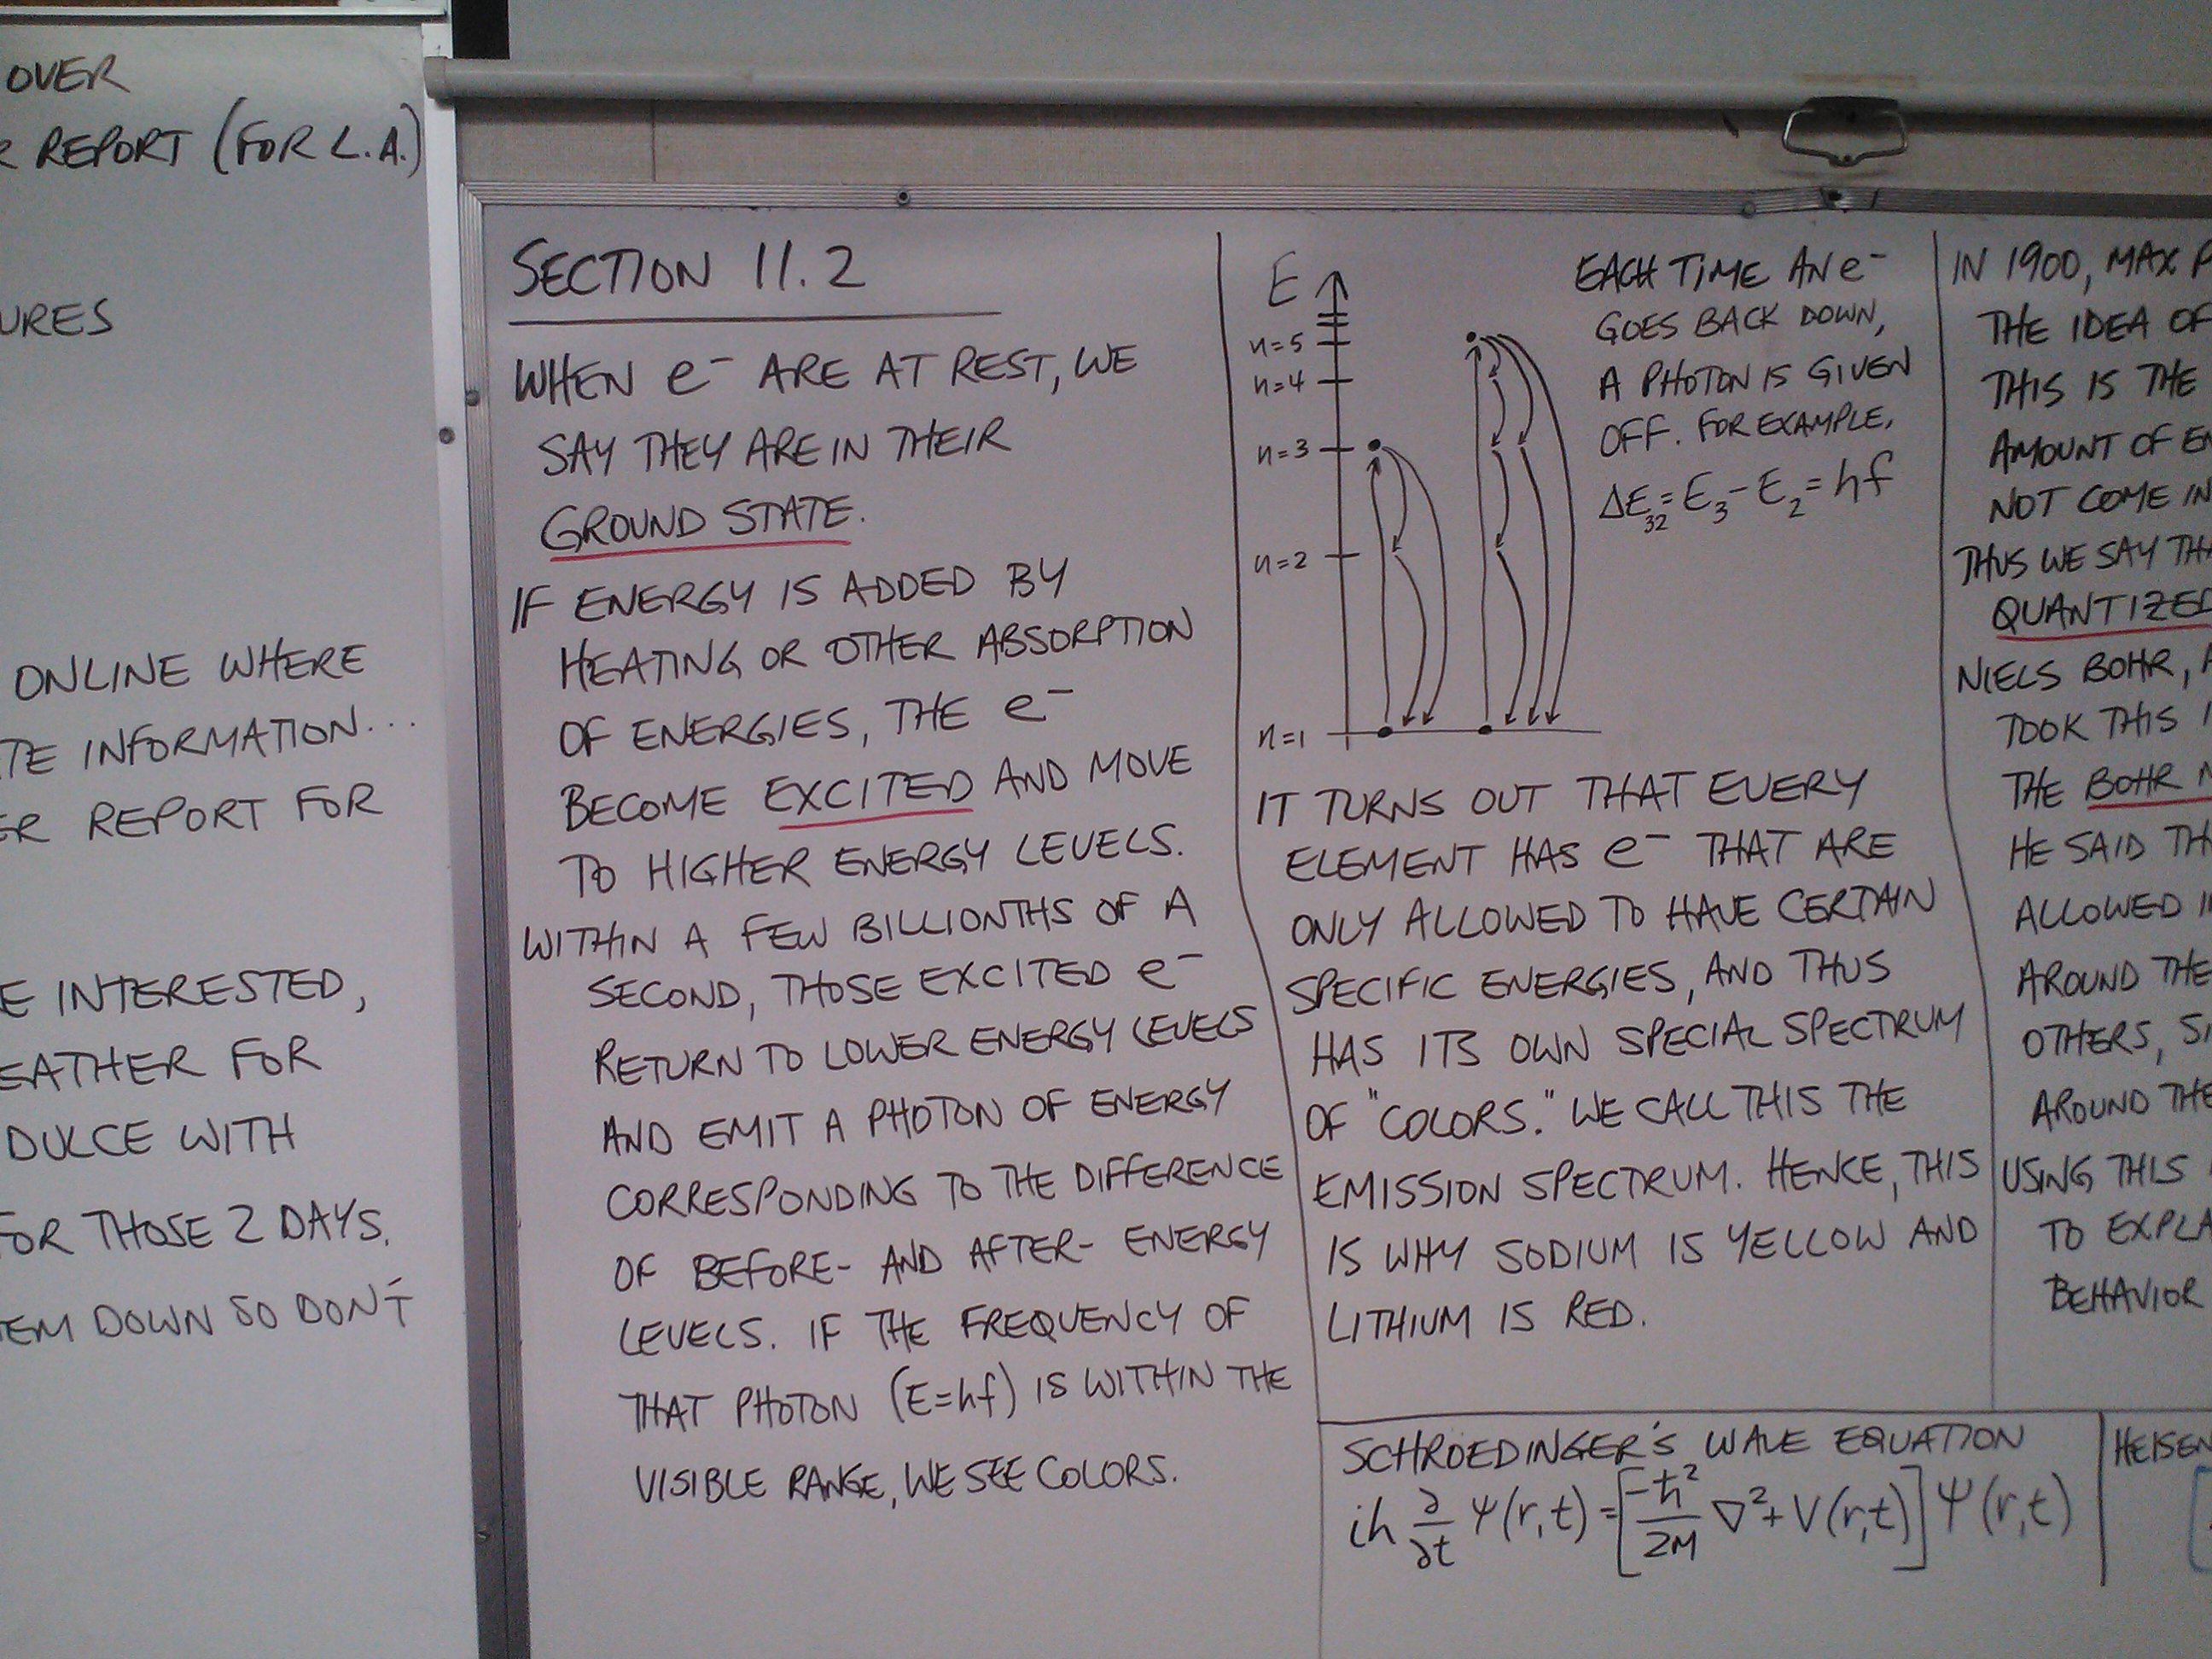 OVER
REPORT (FOR L.A.)
URES
ONLINE WHERE
TE INFORMATION...
ER REPORT FOR
E INTERESTED,
EATHER FOR
DULCE WITH
FOR THOSE 2 DAYS.
EM DOWN SO DON'T
SECTION 11.2
WHEN e⁻ ARE AT REST, WE
SAY THEY ARE IN THEIR
GROUND STATE.
IF ENERGY IS ADDED BY
HEATING OR OTHER ABSORPTION
OF ENERGIES, THE e⁻
BECOME EXCITED AND MOVE
TO HIGHER ENERGY LEVELS.
WITHIN A FEW BILLIONTHS OF A
SECOND, THOSE EXCITED e⁻
RETURN TO LOWER ENERGY LEVELS
AND EMIT A PHOTON OF ENERGY
CORRESPONDING TO THE DIFFERENCE
OF BEFORE- AND AFTER- ENERGY
LEVELS. IF THE FREQUENCY OF
THAT PHOTON (E=hf) IS WITHIN THE
VISIBLE RANGE, WE SEE COLORS.
E
n=5
n=4
n=3
n=2
n=1
EACH TIME AN e⁻
GOES BACK DOWN,
A PHOTON IS GIVEN
OFF. FOR EXAMPLE,
ΔE₃₂=E₃-E₂=hf
IT TURNS OUT THAT EVERY
ELEMENT HAS e⁻ THAT ARE
ONLY ALLOWED TO HAVE CERTAIN
SPECIFIC ENERGIES, AND THUS
HAS ITS OWN SPECIAL SPECTRUM
OF "COLORS." WE CALL THIS THE
EMISSION SPECTRUM. HENCE, THIS
IS WHY SODIUM IS YELLOW AND
LITHIUM IS RED.
IN 1900, MAX P
THE IDEA OF
THIS IS THE
AMOUNT OF EN
NOT COME IN
THUS WE SAY THA
QUANTIZED
NIELS BOHR, A
TOOK THIS I
THE BOHR M
HE SAID TH
ALLOWED I
AROUND THE
OTHERS, SI
AROUND THE
USING THIS
TO EXPLA
BEHAVIOR
SCHROEDINGER'S WAVE EQUATION
iħ ∂/∂t Ψ(r,t) = [-ħ²/2M ∇²+ V(r,t)] Ψ(r,t)
HEISEN